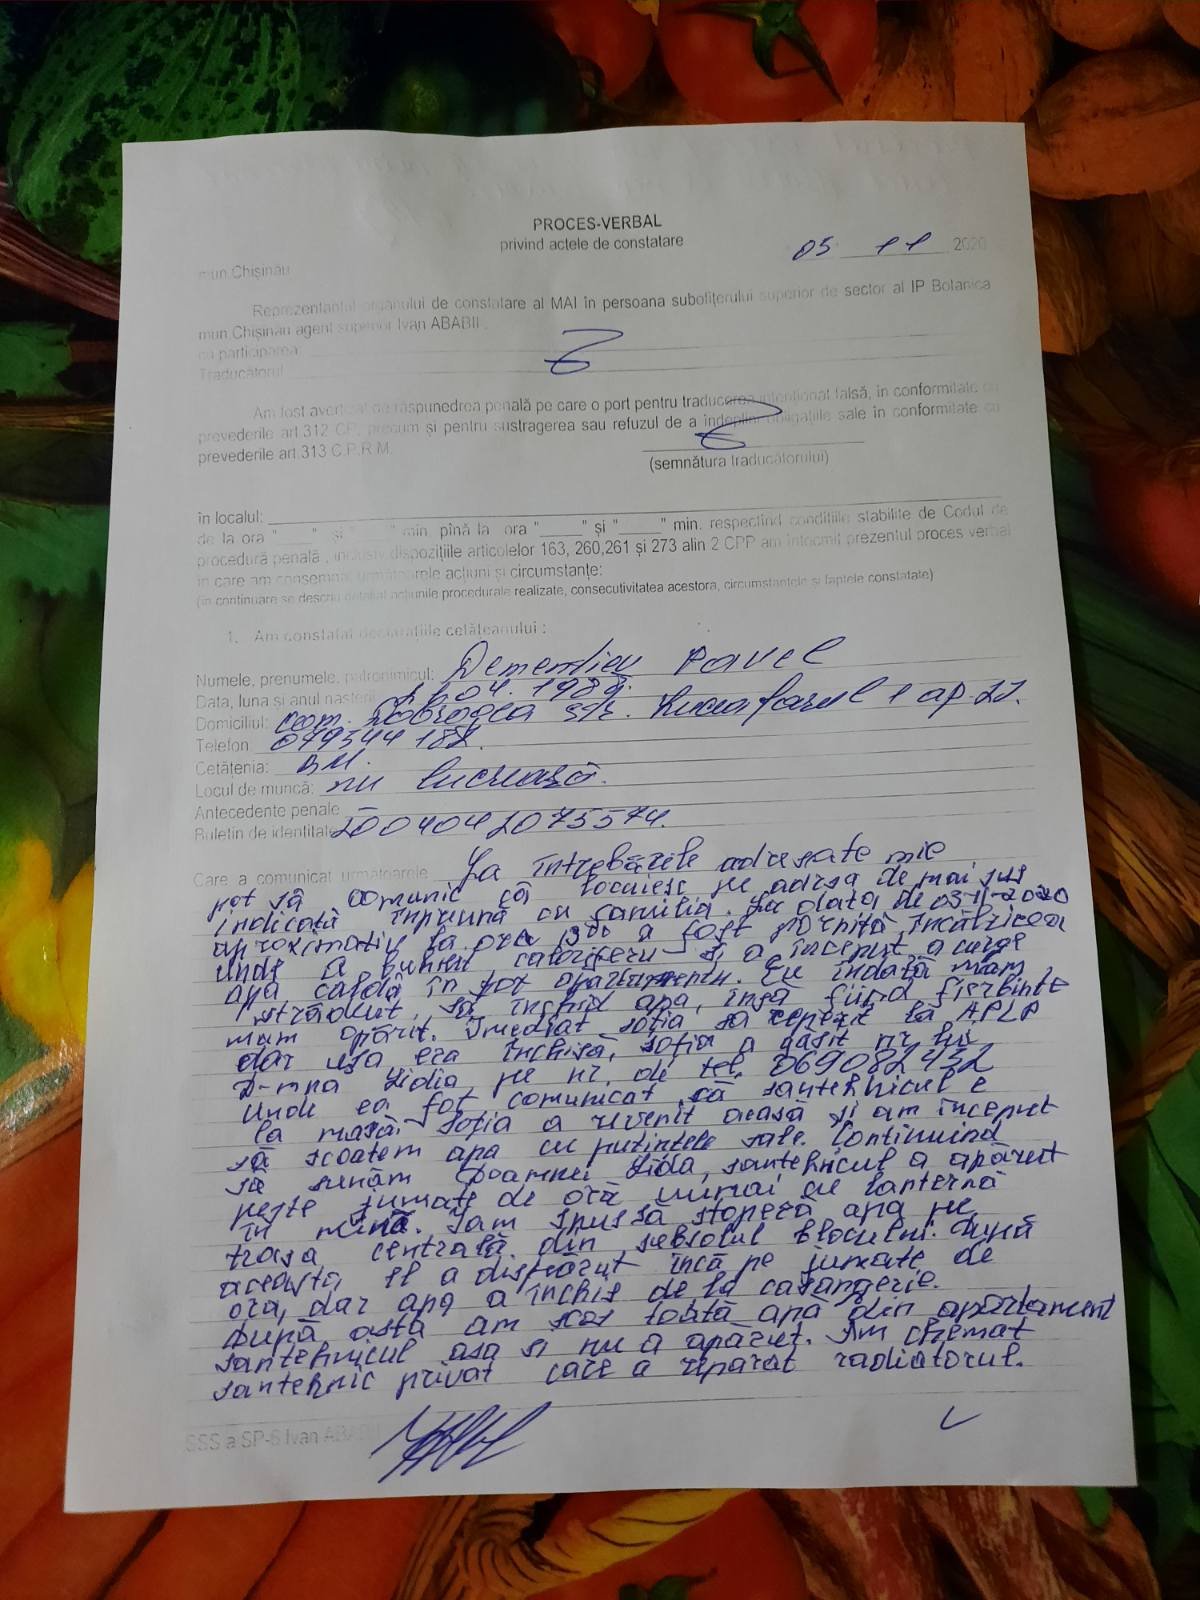 PROCES-VERBAL
privind actele de constatare
05 11 2020
mun.Chișinău
Reprezentantul organului de constatare al MAI în persoana subofițerului superior de sector al IP Botanica
mun.Chișinău agent superior Ivan ABABII
cu participarea:
Traducătorul
Am fost avertizat de răspunedrea penală pe care o port pentru traducerea intenționat falsă, în conformitate cu
prevederile art.312 CP, precum și pentru sustragerea sau refuzul de a îndeplini obligațiile sale în conformitate cu
prevederile art.313 C.P.R.M.
(semnătura traducătorului)
în localul:
de la ora " " și " " min. pînă la ora " " și " " min. respectînd condițiile stabilite de Codul de
procedură penală , inclusiv dispozițiile articolelor 163, 260,261 și 273 alin 2 CPP am întocmit prezentul proces verbal
în care am consemnat următoarele acțiuni și circumstanțe:
(în continuare se descriu detaliat acțiunile procedurale realizate, consecutivitatea acestora, circumstanțele și faptele constatate)
1. Am constatat declarațiile cetățeanului :
Numele, prenumele, patronimicul: Dementiev Pavel
Data, luna și anul nașterii 04. 1989.
Domiciliul: com. Dobrogea str. Luceafarul 1 ap. 27.
Telefon 079544182.
Cetățenia: RM.
Locul de muncă: nu lucrează.
Antecedente penale –
Buletin de identitate 2004042075574.
Care a comunicat următoarele La întrebările adresate mie
pot să comunic că locuiesc pe adresa de mai sus
indicată împreună cu familia. La data de 03-11-2020
aproximativ la ora 13 00 a fost pornită încălzirea
unde a caloriferu și a început a curge
apa caldă în tot apartamentu. Eu îndată mam
străduit, să închid apa, însă fiind fierbinte
mam opărit. Imediat soția sa repezit la APLP
dar ușa era închisă, soția a găsit nr lui
D-mna Lidia, pe nr. de tel. 069082452
unde ea fot comunicat că santehnicul e
la masă. Soția a revenit acasă și am început
să scoatem apa cu putințele sale. Continuind
să sunăm Doamnei Lida, santehnicul a apărut
peste jumate de oră numai cu lanternă
în mînă. Iam spus să stopeză apa pe
trasa centrală din subsolul blocului. După
aceasta el a dispărut încă pe jumate de
oră, dar apa a închis de la cazangerie.
După asta am scos toată apă din apartament
santehnicul așa și nu a apărut. Am chemat
santehnic privat care a reparat radiatorul.
SSS a SP-6 Ivan ABABII